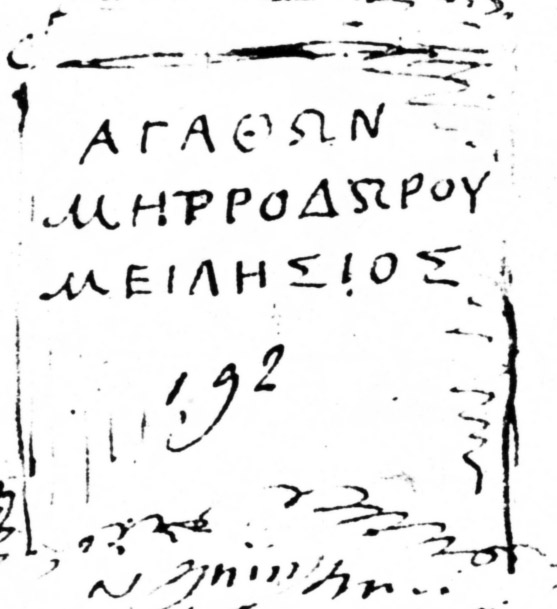 ΑΓΑΘΩΝ
ΜΗΤΡΟΔΩΡΟΥ
ΜΕΙΛΗΣΙΟΣ
192